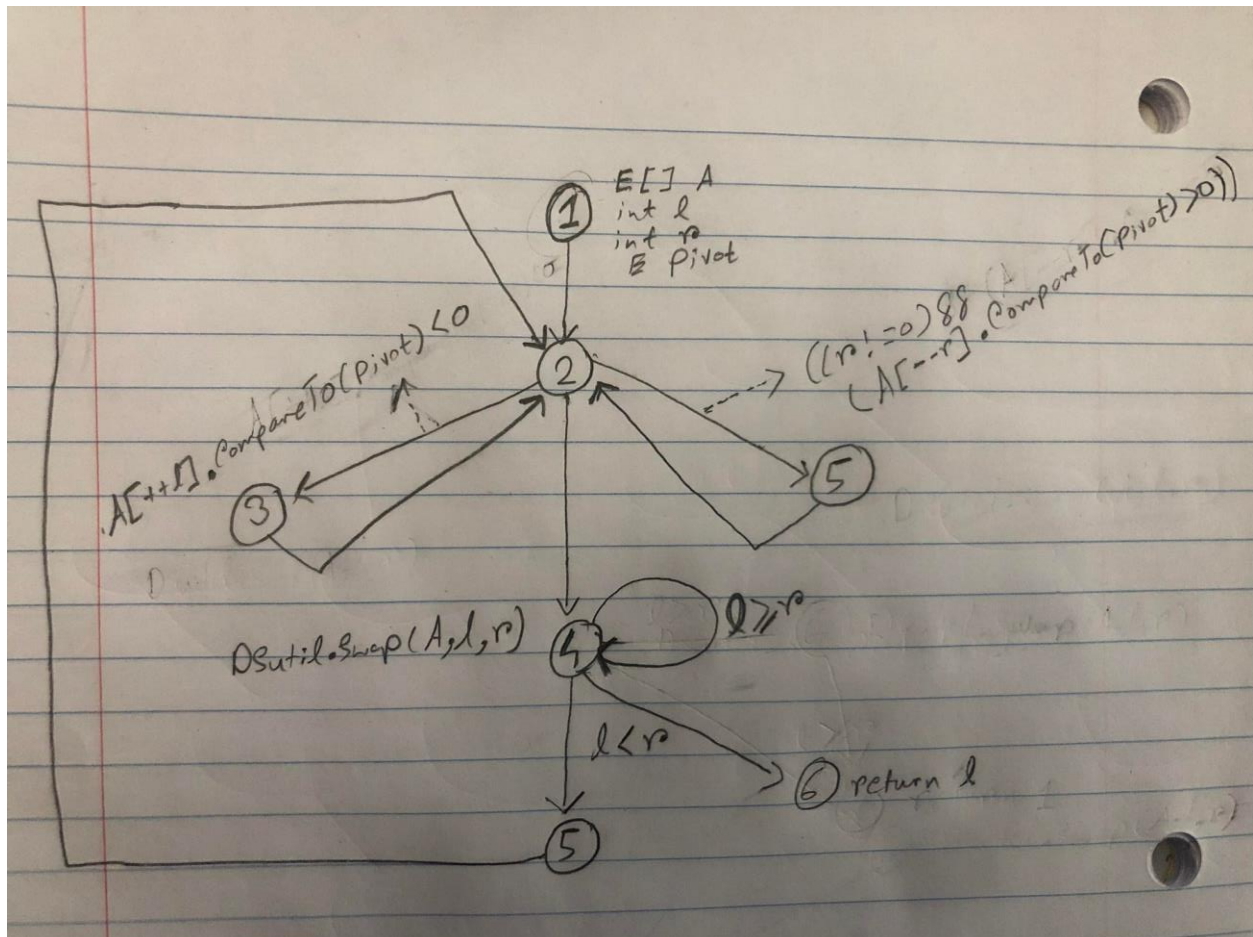 1
E[] A
int l
int r
E Pivot
A[++l].CompareTo(Pivot)<0
2
((r!=0)&&
(A[--r].CompareTo(Pivot)>0))
3
5
DSutil.Swap(A,l,r)
4
l≥r
l<r
6 return l
5